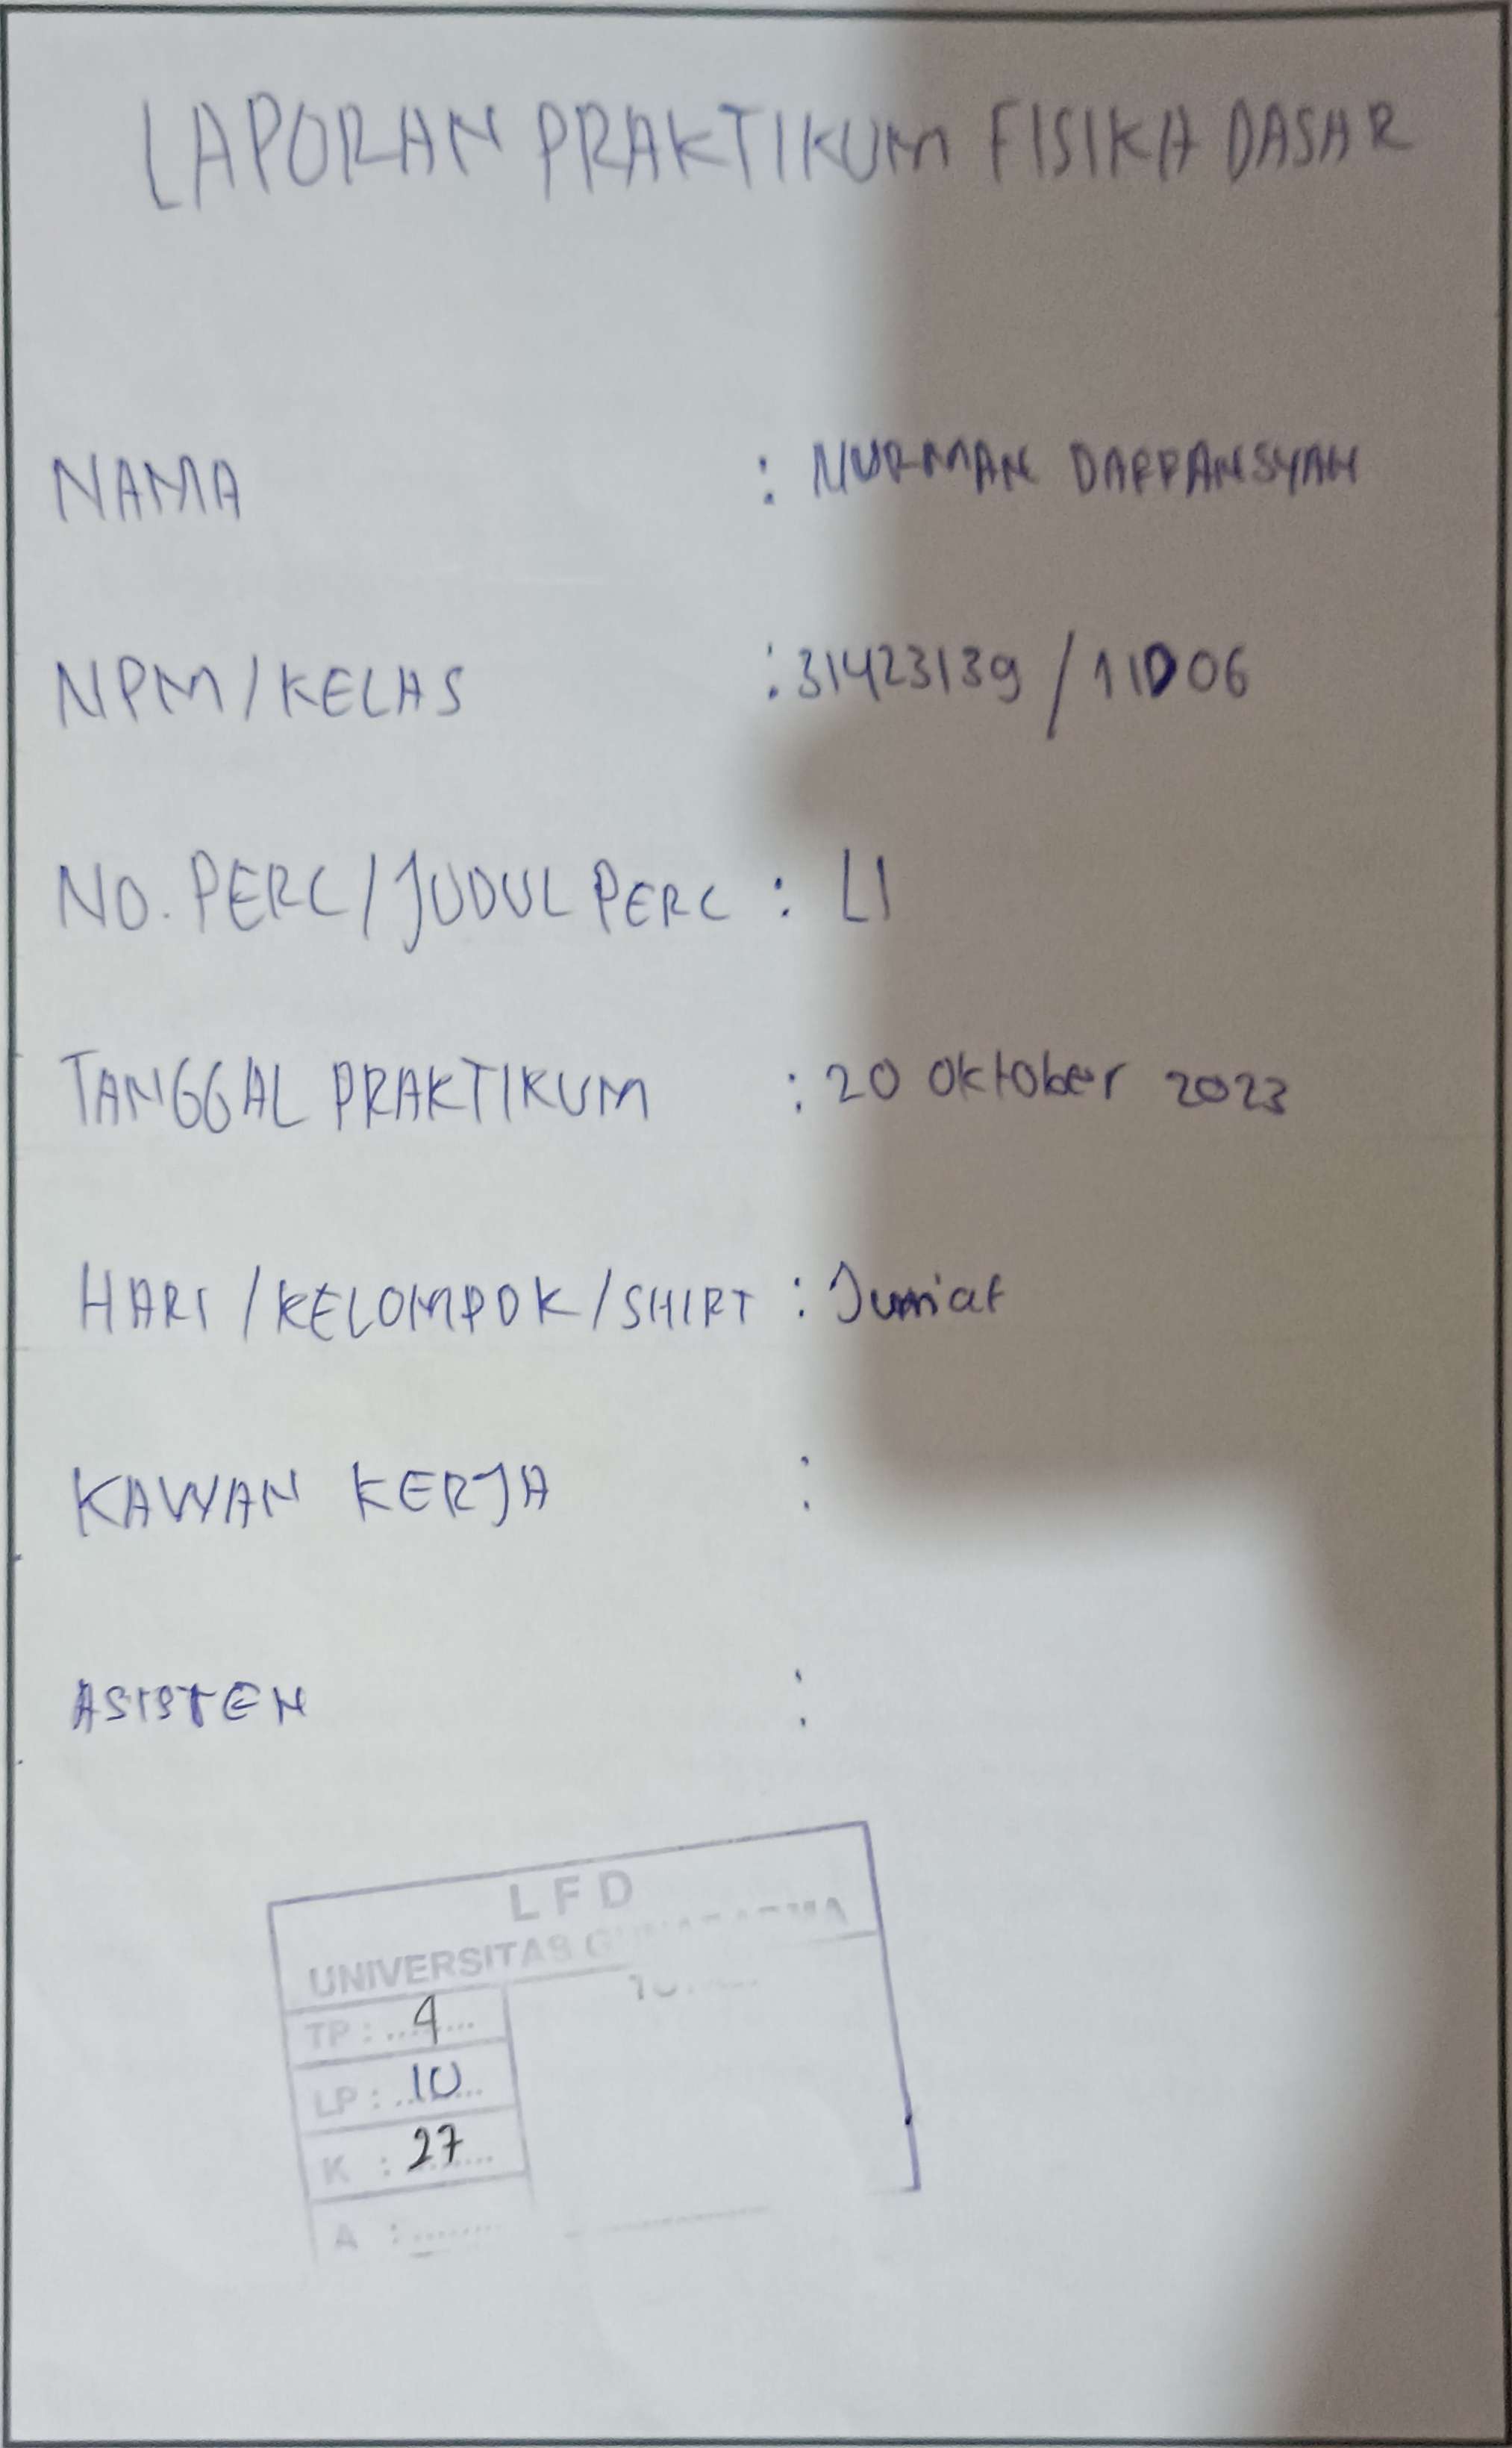 LAPORAN PRAKTIKUM FISIKA DASAR
NAMA : NURMAN DAFFANSYAH
NPM/KELAS : 31423139 / 11D06
NO. PERC/JUDUL PERC : L1
TANGGAL PRAKTIKUM : 20 Oktober 2023
HARI /KELOMPOK/SHIFT : Jum'at
KAWAN KERJA :
ASISTEN :
LFD
UNIVERSITAS
TP : 4
LP : 10
K : 27
A :